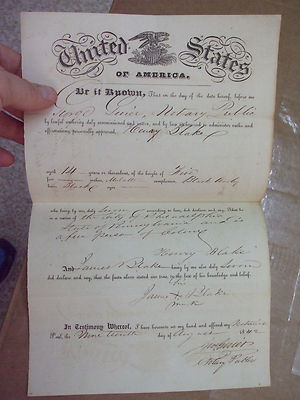 United States
OF AMERICA.
Be it Known, That on the day of the date hereof, before me
Notary Public
by lawful authority duly commissioned and sworn, and by law authorized to administer oaths and
affirmations, personally appeared, Henry Blake
aged 14 years or thereabouts, of the height of Five
feet inches, complexion,
hair, Black eyes
who being by me, duly Sworn according to law, did declare and say, That he
is a native of the City of Philadelphia
State of Pennsylvania and is
a free Person of Colour
Henry Blake
And James Blake being by me also duly Sworn
did declare and say, that the facts above stated are true, to the best of his knowledge and belief.
his
James X Blake
mark
In Testimony Whereof, I have hereunto set my hand and affixed my Notarial
Seal, the day of August 1842
Notary Public